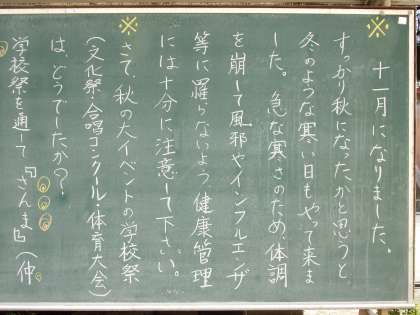 ※ 十一月になりました。
すっかり秋になったかと思うと、
冬のような寒い日もやって来ま
した。急な寒さのため、体調
を崩して風邪やインフルエンザ
等に罹らないよう健康管理
には十分に注意して下さい。
※ さて、秋の大イベントの学校祭
(文化祭・合唱コンクール・体育大会)
は、どうでしたか?
学校祭を通して『さんま』(仲